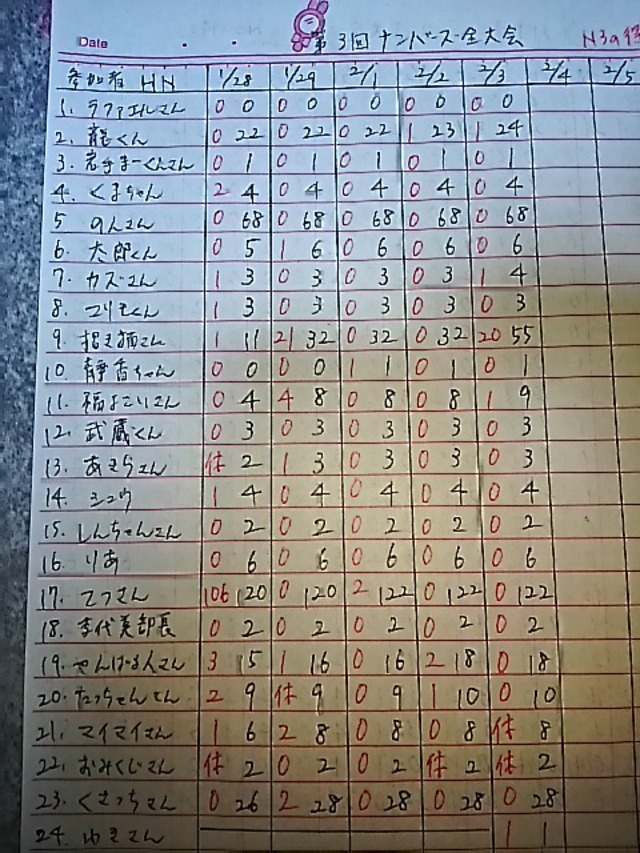 Date
第3回 ナンバーズ全大会 N3の
参加者 HN 1/28 1/29 2/1 2/2 2/3 2/4 2/5
1. ラファエルさん 0 0 0 0 0 0 0 0 0 0
2. 龍くん 0 22 0 22 0 22 1 23 1 24
3. 岩手まーくんさん 0 1 0 1 0 1 0 1 0 1
4. くまちゃん 2 4 0 4 0 4 0 4 0 4
5 のんさん 0 68 0 68 0 68 0 68 0 68
6. 太郎くん 0 5 1 6 0 6 0 6 0 6
7. カズさん 1 3 0 3 0 3 0 3 1 4
8. コリモくん 1 3 0 3 0 3 0 3 0 3
9. 招き猫さん 1 11 21 32 0 32 0 32 20 55
10. 静香ちゃん 0 0 0 0 1 1 0 1 0 1
11. 福よこいさん 0 4 4 8 0 8 0 8 1 9
12. 武蔵くん 0 3 0 3 0 3 0 3 0 3
13. あきらさん 休 2 1 3 0 3 0 3 0 3
14. シュウ 1 4 0 4 0 4 0 4 0 4
15. しんちゃんさん 0 2 0 2 0 2 0 2 0 2
16. りあ 0 6 0 6 0 6 0 6 0 6
17. てつさん 106 120 0 120 2 122 0 122 0 122
18. 李代美部長 0 2 0 2 0 2 0 2 0 2
19. やんばる人さん 3 15 1 16 0 16 2 18 0 18
20. たっちゃんさん 2 9 休 9 0 9 1 10 0 10
21. マイマイさん 1 6 2 8 0 8 0 8 休 8
22. おみくじさん 休 2 0 2 0 2 休 2 休 2
23. くさっちさん 0 26 2 28 0 28 0 28 0 28
24. ゆきさん 1 1